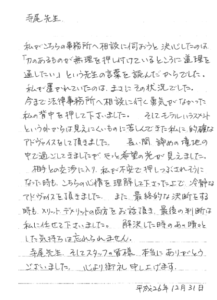 寺尾先生
私がこちらの事務所へ相談に伺おうと決心したのは
「力のあるものが無理を押し付けているところに道理を
通したい」という先生の言葉を読んだからでした。
私が置かれていたのは、まさにその状況でした。
今まで法律事務所へ相談に行く勇気がなかった
私の背中を押して下さいました。そしてモラルハラスメント
という外からは見えにくいものに苦しんできた私に、的確な
アドヴァイスをして頂きました。長い間 諦めの境地の
中で過ごしてきましたが、やっと希望の光が見えました。
相手との交渉に入り、私が不安で押しつぶされそうに
なった時も、こちらの心情を理解して下さった上で、冷静な
アドヴァイスを頂きました。また、最終的な決断をする
時も、メリット デメリットの両方をお話し頂き、最後の判断は
私に任せて下さいました。解決した時のあの晴々と
した気持ちは忘れられません。
寺尾先生、そしてスタッフの皆様 本当にありがとう
ございました。心より御礼申し上げます。
平成26年12月31日